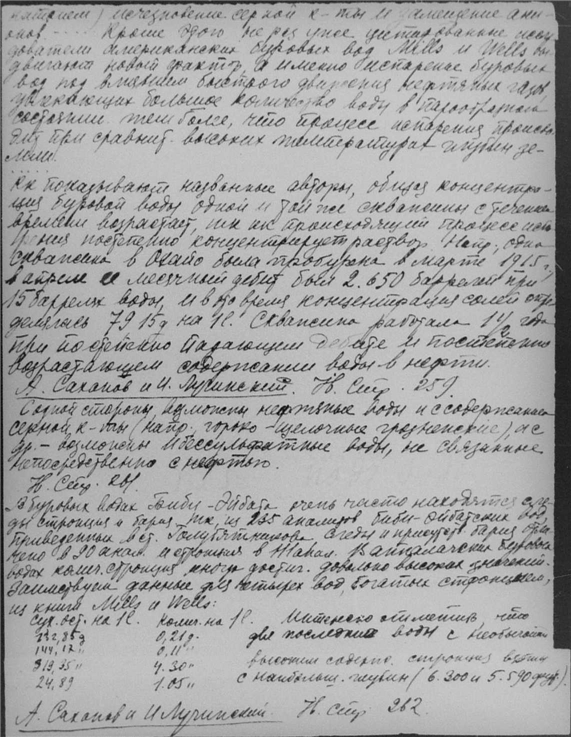 исчезновение серной к-ты и замещение ани-
онов. Кроме этого не раз уже цитированные иссле-
дователи американских буровых вод Mills и Wells вы-
двигают новый фактор, а именно испарение буровых
вод под влиянием быстрого движения нефтяных газов
увлекающих большое количество воды в парообразном
состоянии тем более, что процесс испарения происхо-
дит при сравнит. высоких температурах глубин зе-
мли.
Как показывают названные авторы, общая концентра-
ция буровой воды одной и той же скважины с течением
времени возрастает, так как происходящий процесс испа-
рения постепенно концентрирует раствор. Напр., одна
скважина в Огайо была пробурена в марте 1915 г.,
в апреле ее месячный дебит был 2.650 баррелей при
15 баррелях воды, и в то время концентрация солей опре-
делялась 79.15g на 1l. Скважина работала 1½ года
при постепенно падающем дебите и постепенно
возрастающем содержании воды в нефти.
А. Саханов и И. Лучинский. Н. Стр. 259.
С одной стороны возможны нефтяные воды и с содержанием
серной к-ты (напр. горько-щелочные грозненские), а с
др. - возможны и бессульфатные воды, не связанные
непосредственно с нефтью.
Н. Стр. 261
В буровых водах Биби-Эйбата очень часто находятся сле-
ды стронция и бария. Так, из 235 анализов биби-эйбатских вод,
приведенных в ст. Голубятникова, следы и присутств. бария отме-
чено в 90 анал. и стронция в анал. В аппалачских буровых
водах колич. стронция иногда достиг. довольно высоких значений.
Заимствуем данные для четырех вод, богатых стронцием,
из книги Mills и Wells:
Сух. ост. на 1l. Колич. на 1l. Интересно отметить, что
232,85g 0,21g. две последние воды с необычайно
144,17" 0,11"
319,35" 4.30" высоким содерж. стронция взяты
24,89 1.05" с наибольш. глубин (6.300 и 5.590 фут.).
А. Саханов и И. Лучинский. Н. Стр. 262.